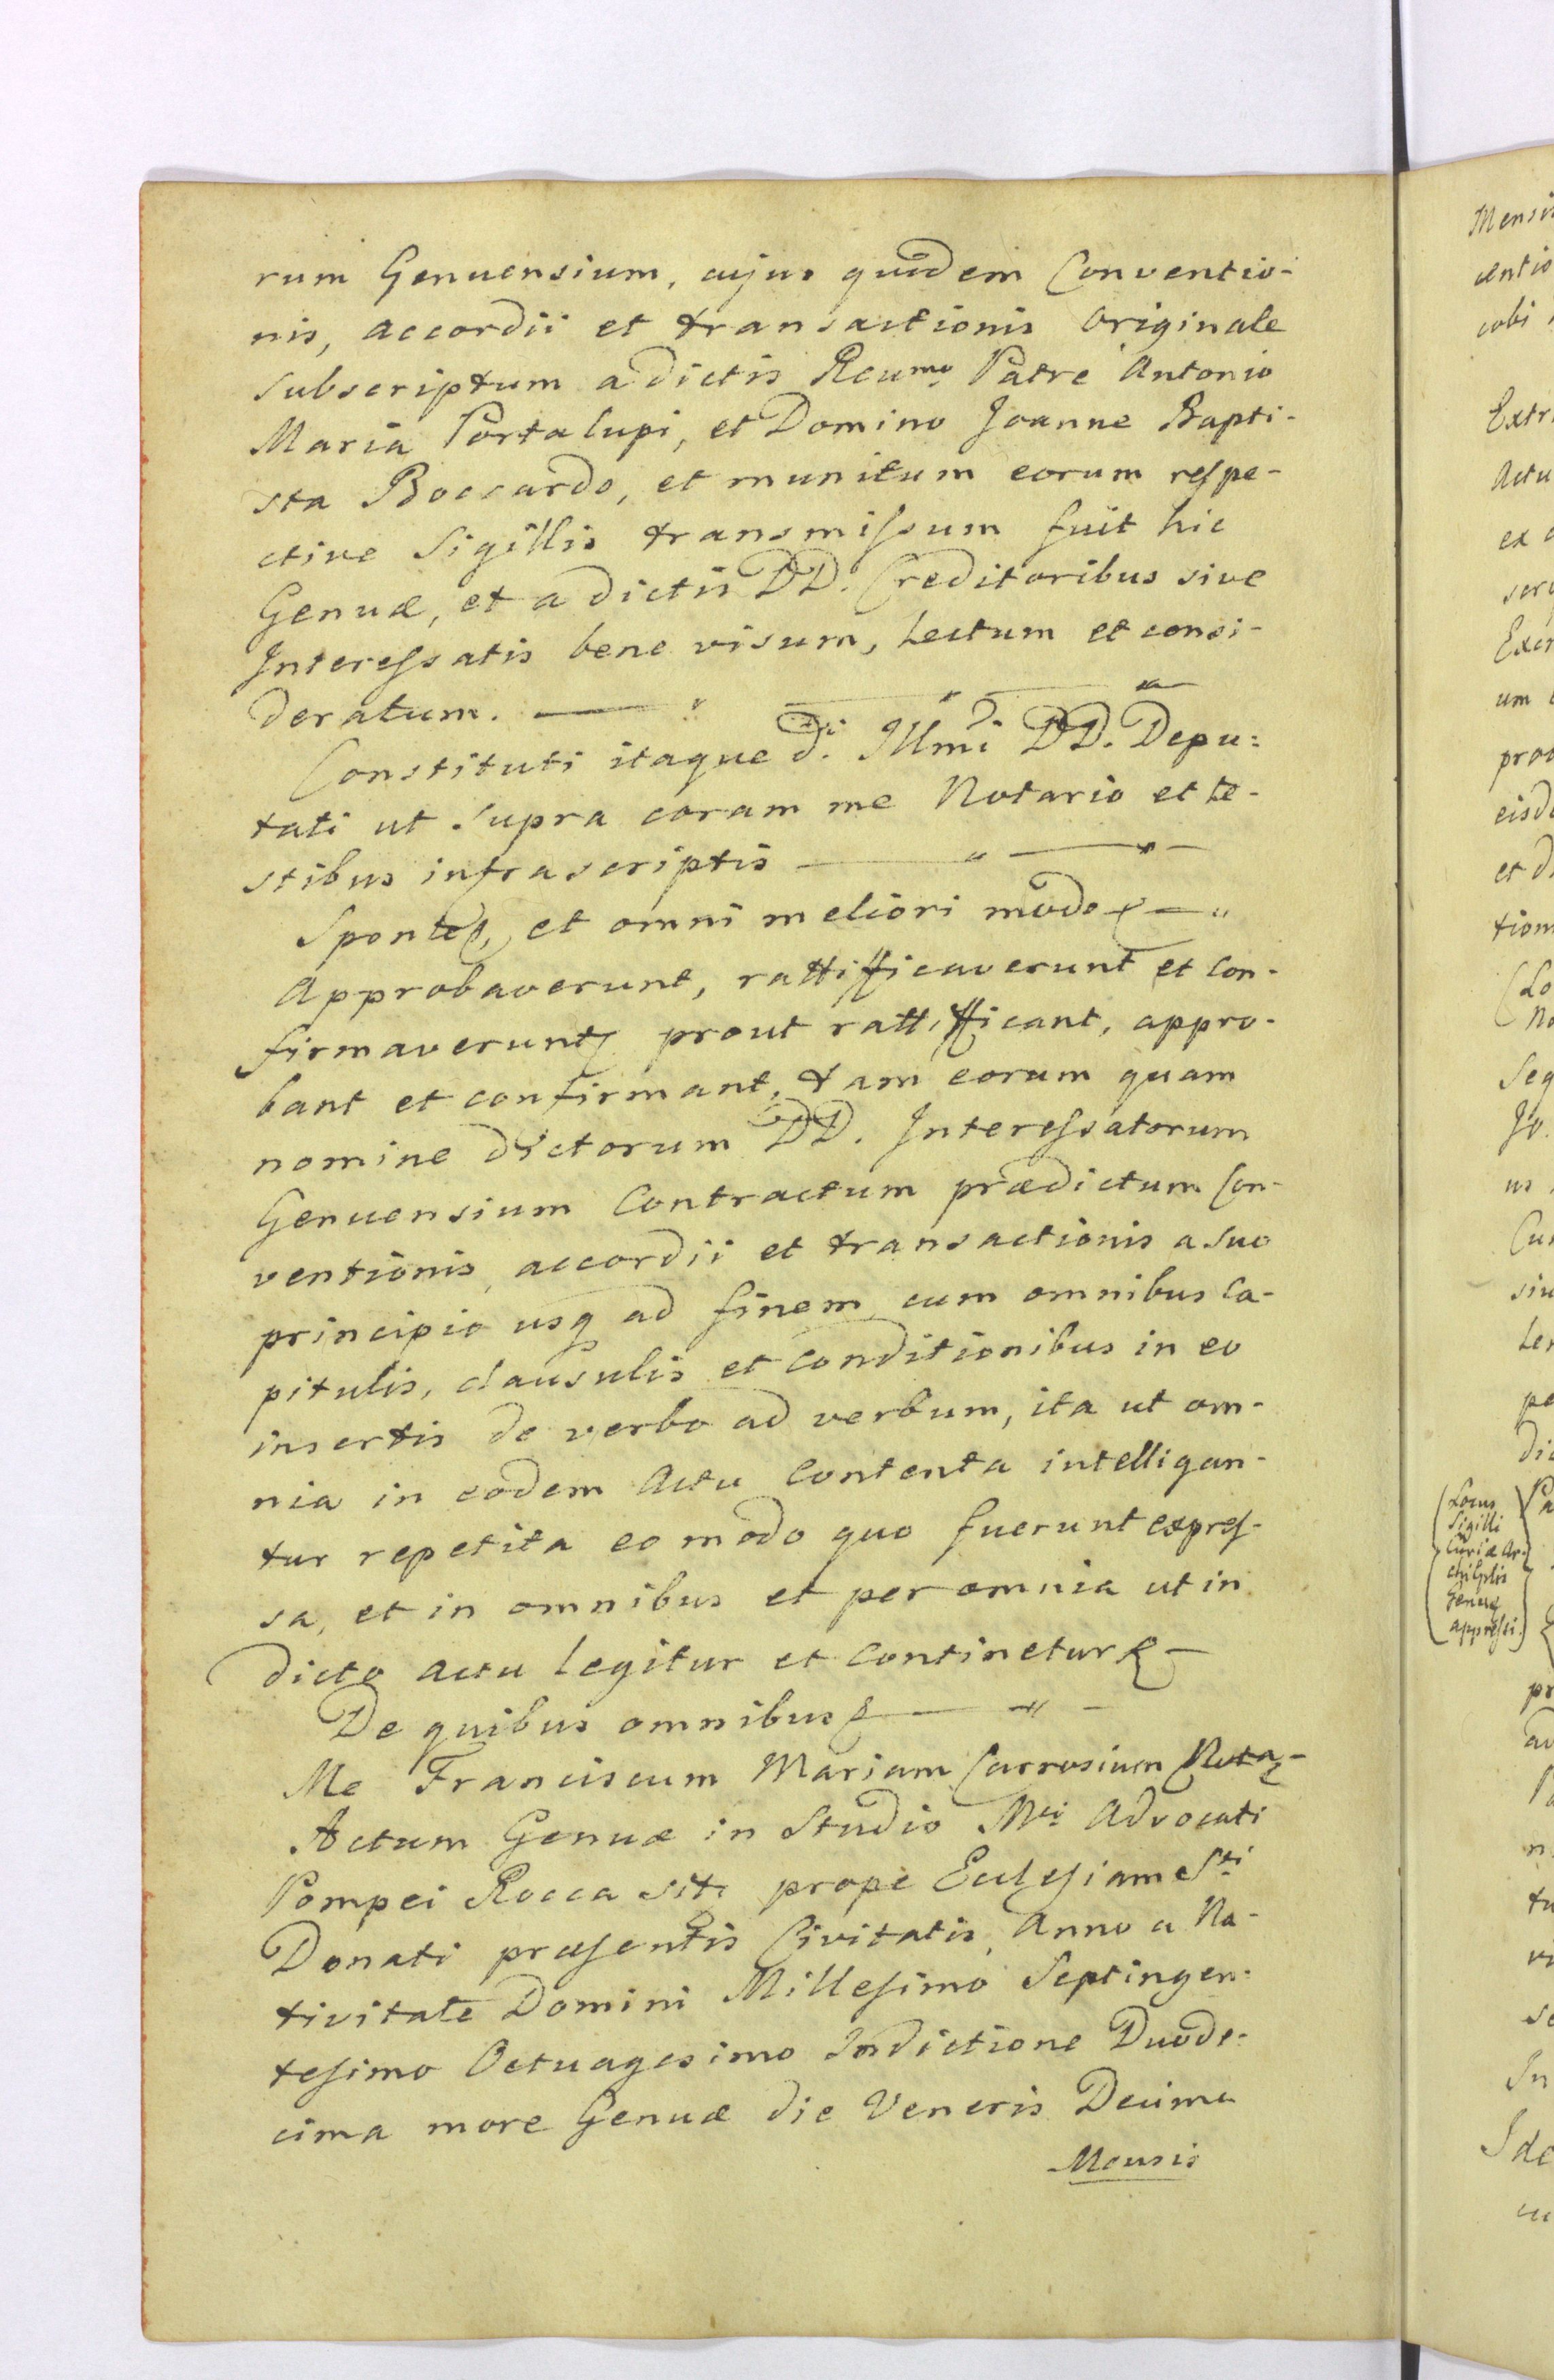 rum Genuensium, cujus quidem Conventio-
nis, accordii et transactionis Originale
subscriptum a dictis Reumo Patre Antonio
Maria Portalupi, et Domino Joanne Bapti-
sta Boccardo, et munitum eorum respe-
ctive Sigillis transmissum fuit hic
Genuæ, et a dictis DD. Creditoribus sive
Interessatis bene visum, Lectum et consi-
deratum.
Constituti itaque d.i Illmi DD. Depu-
tati ut supra coram me Notario et te-
stibus infrascriptis
Sponte, et omni meliori modo
Approbaverunt, rattifficaverunt et con-
firmaverunt prout rattifficant, appro-
bant et confirmant, tam eorum quam
nomine dictorum DD. Interessatorum
Genuensium Contractum prædictum Con-
ventionis accordii et transactionis a suo
principio usq ad finem cum omnibus Ca-
pitulis, clausulis et Conditionibus in eo
insertis de verbo ad verbum, ita ut om-
nia in eodem Actu Contenta intelligan-
tur repetita eo modo quo fuerunt expres-
sa, et in omnibus et per omnia ut in
dicto actu Legitur et Continetur
De quibus omnibus
Me Franciscum Mariam Carrosium Nota-
Actum Genuæ in Studio Mci Advocati
Pompei Rocca siti prope Ecclesiam Sti
Donati præsentis Civitatis, Anno a Na-
tivitate Domini Millesimo Septingen-
tesimo Octuagesimo Indictione Duode-
cima more Genuæ die Veneris Decima
Mensis
Mensi
cobi
Extr
Actu
ex
um
eisd
et d
tion
Seq
Jo.
Locus
Sigilli
Curiæ Ar-
Genuæ
appressi